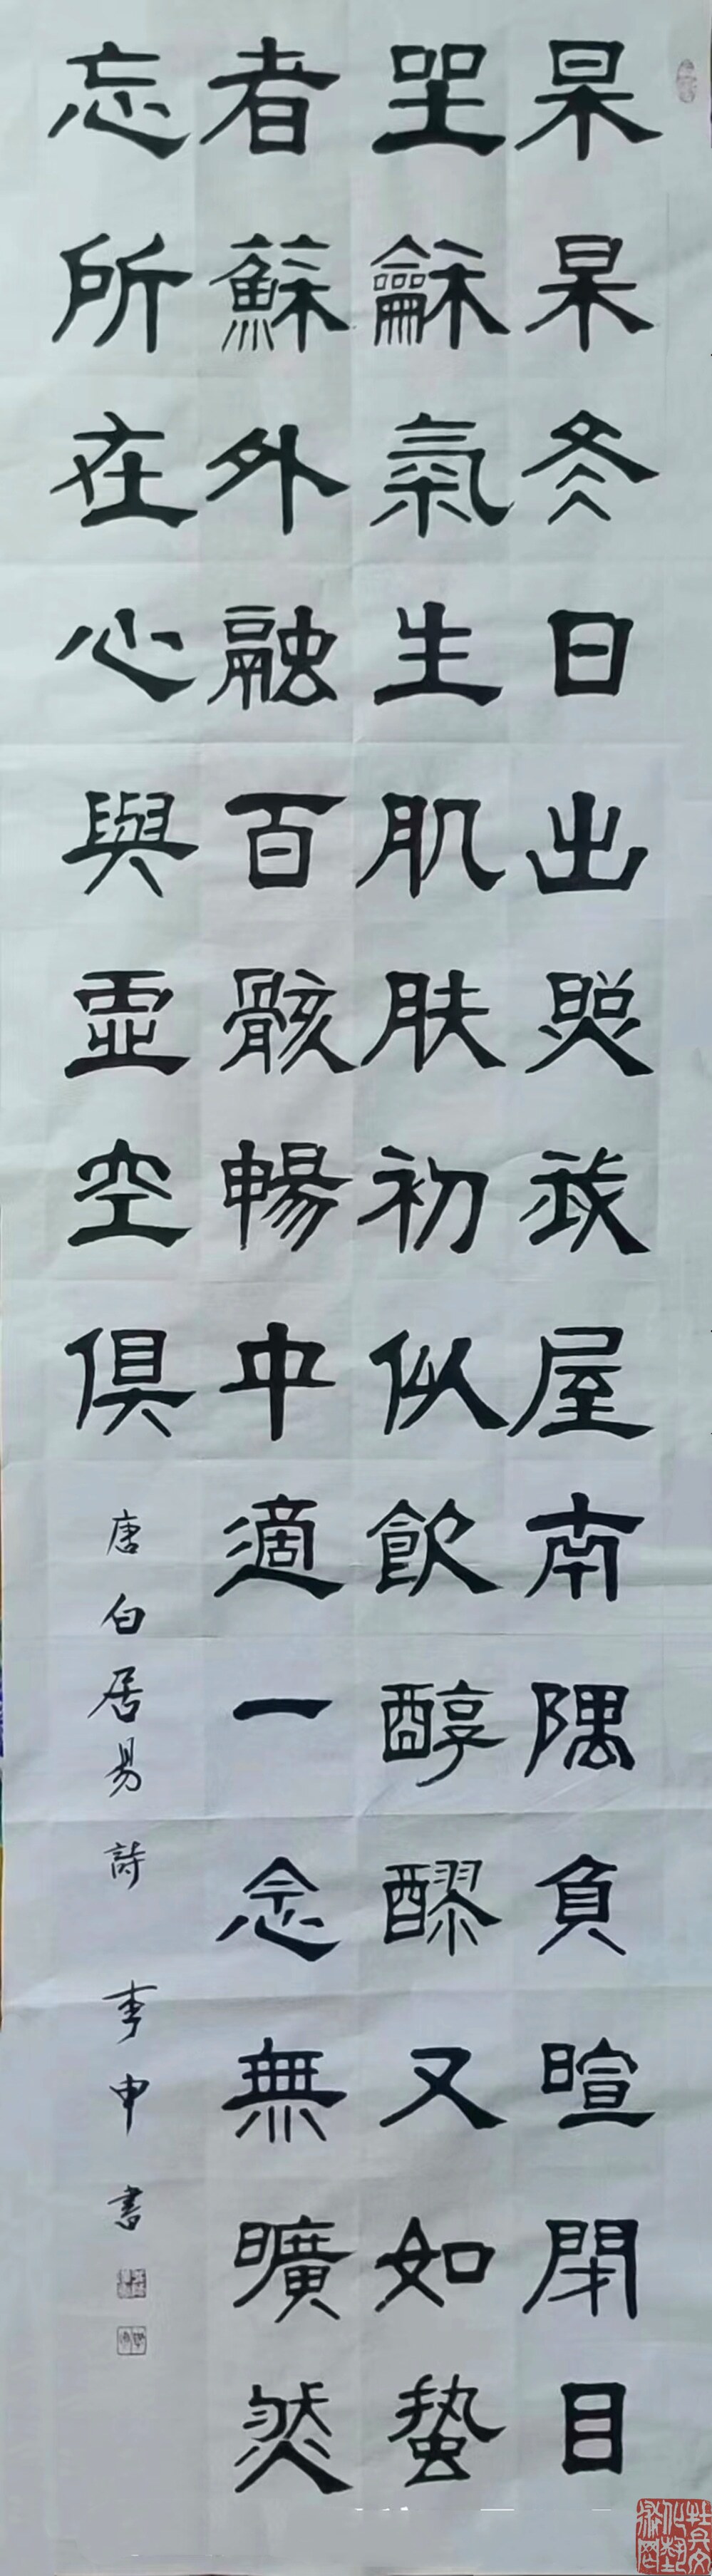 杲杲冬日出照我屋南隅負暄閉目
坐龢氣生肌膚初似飲醇醪又如蟄
者蘇外融百骸暢中適一念無曠然
忘所在心與虛空俱
唐白居易詩 李申書